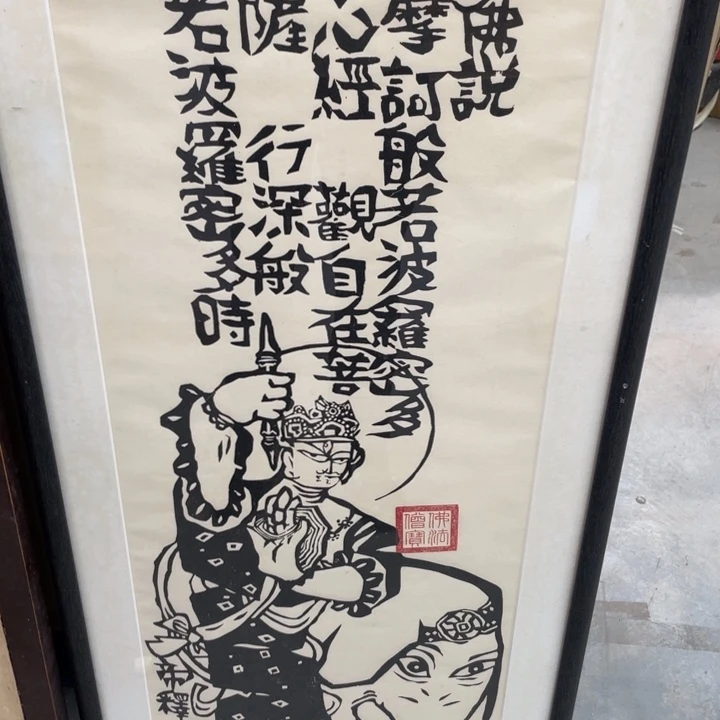 佛説
摩訶般若波羅密多
心經 觀自在菩
薩 行深般
若波羅密多時
佛法
僧寶
帝釋